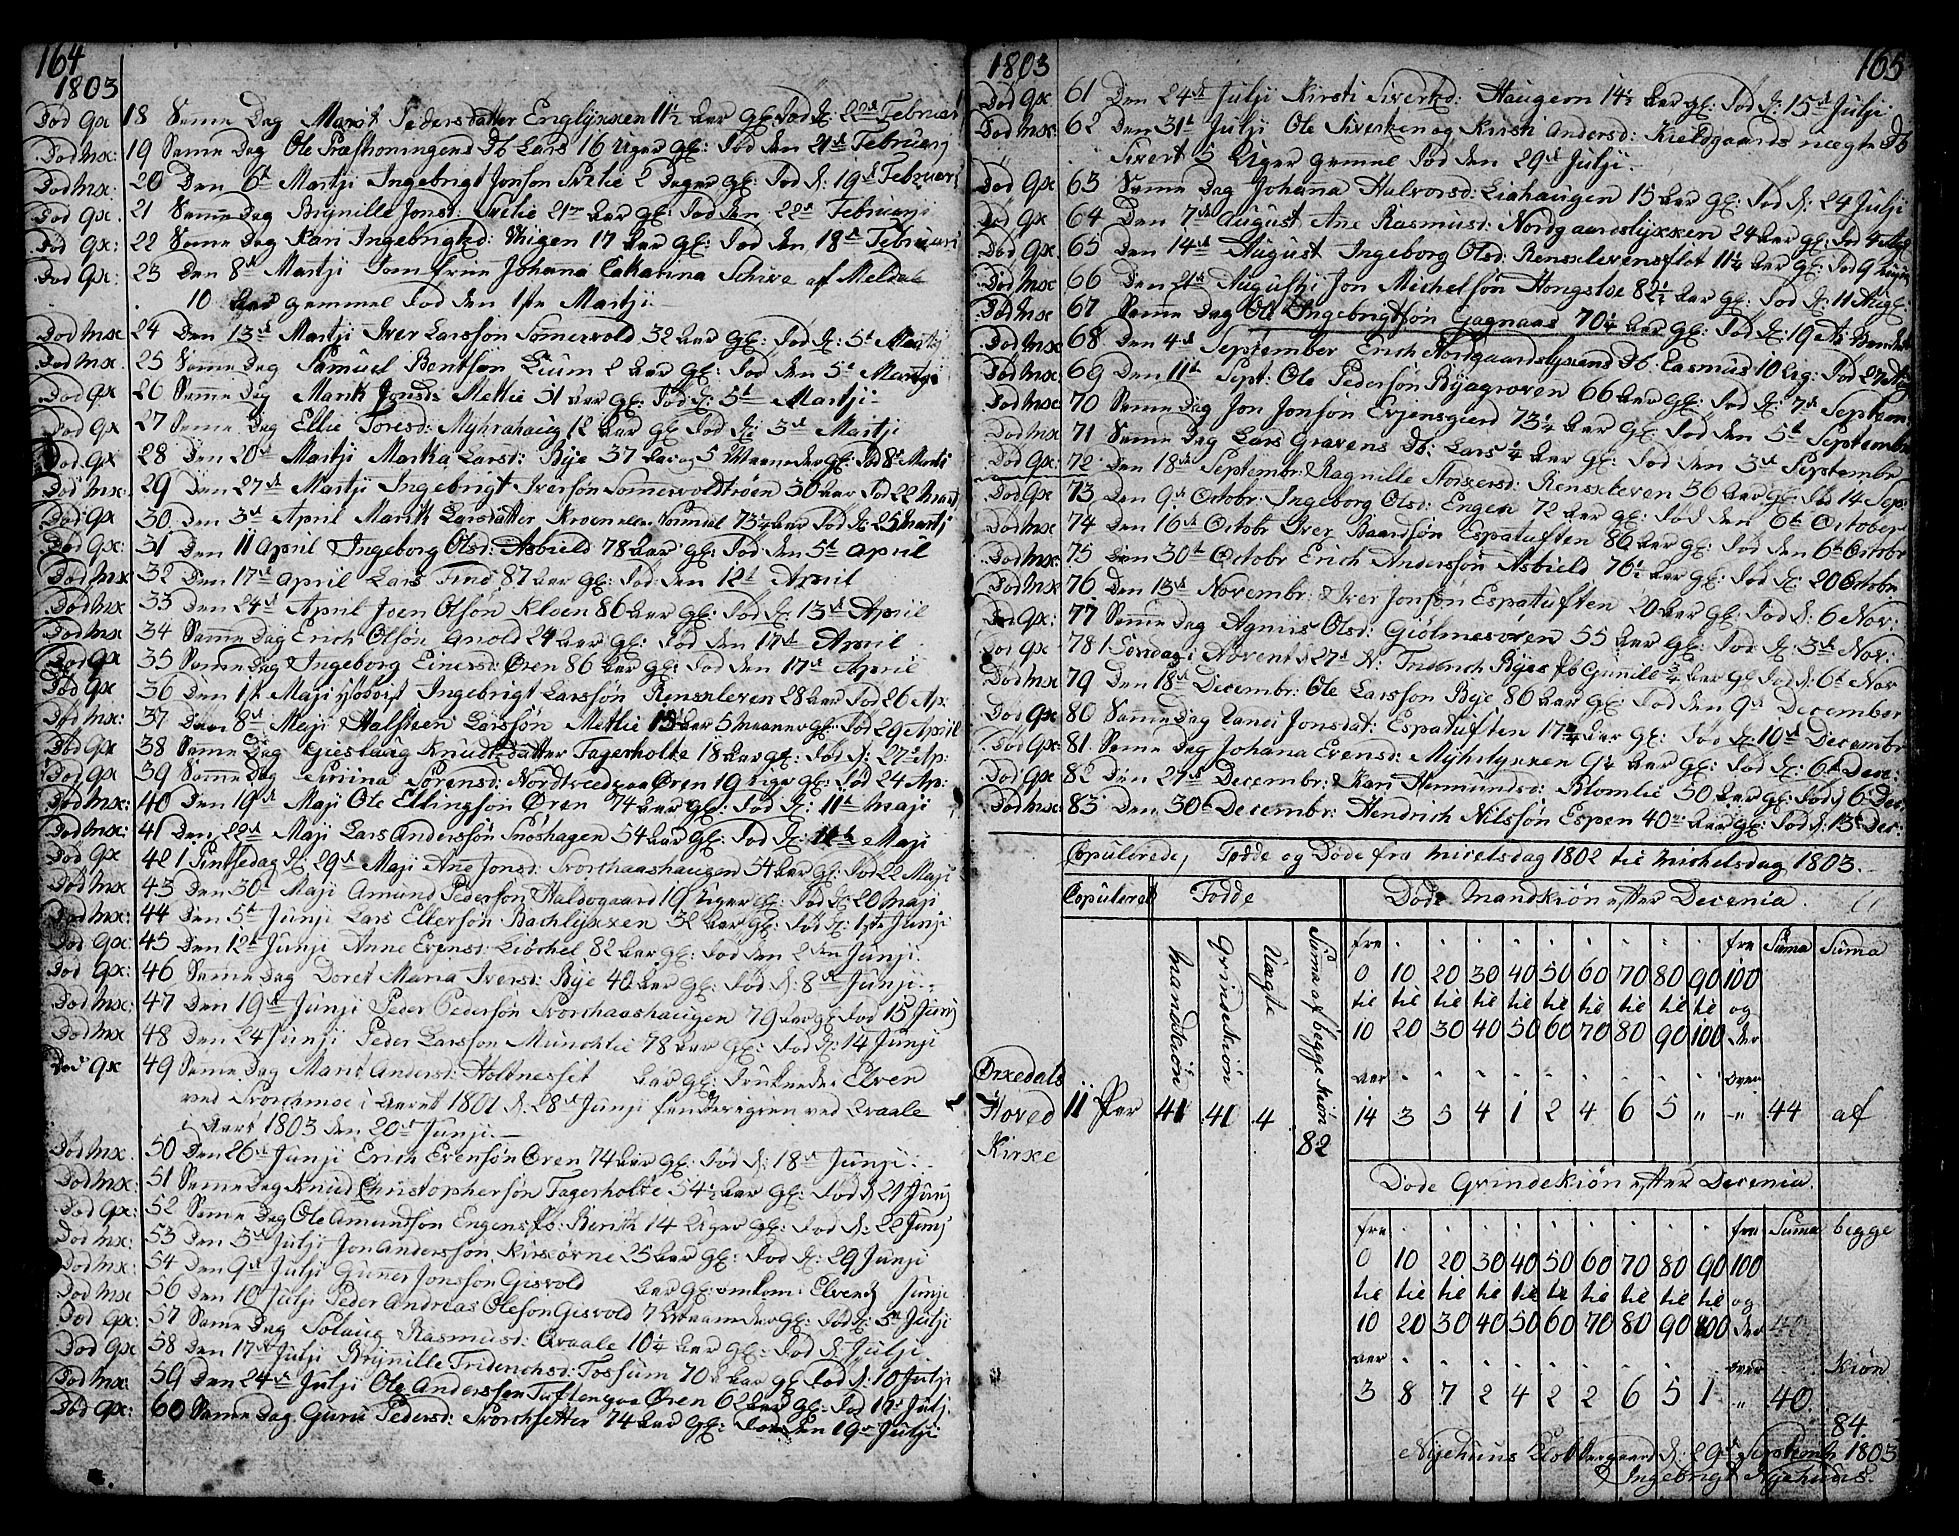 164
1803
Død Qx 18 Same Dag Marit Pedersdatter Englyxxen 11½ Aar gl: Død d: 22de Februari
Død Mx: 19 Same Dag Ole Præsthoningens Db Lars 16 Uger gl: Død den 21de Februarj
Død Mx: 20 Den 6te Martji Ingebrigt Jonsøn 2 Dager gl: Død d: 19de Februari
Død Qx. 21 Same Dag Brynille Jonsd: 21 Aar gl: Død den 22de Februarji
Død Qx: 22 Same Dag Kari Ingebrigtsd: 17 Aar gl: Død den 18de Februari
Død Qx: 23 Den 8de Martji Jomfrue Johana Schive af Meldal
10 Aar gammel Død den 1ste Martji
Død Mx 24 Den 13de Martji Iver Larssøn Somervold 32 Aar gl: Død d: 5te Martj
Død Mx. 25 Same Dag Samuel Bentsøn Lium 2 Aar gl: Død den 5te Martji
Død Qx 26 Same Dag Marit Jonsd: Metlie 51 Aar gl: Død d: 5te Martji
Død Qx 27 Same Dag Ellie Toresd: Myhrahaug 12 Aar gl Død d: 3de Martji
Død Qx 28 Den 20de Martji Marita Larsd: Bye 37 Aar og 5 Maaneder gl: Død 8de Marti
Død Mx: 29 Den 27de Martji Ingebrigt Iversøn Somervoldtrøen 30 Aar Død 22 Martj
Død Qx 30 Den 3de April Marit Larsdatter 73¼ Aar Død d: 25 Martj
Død Qx: 31 Den 11 April Ingeborg Olsd: Asbield 78 Aar gl: Død den 5te April
Død Mx 32 Den 17de April Lars 87 Aar gl: Død den 12te April
Død Mx 33 Den 24de April Joen Olsøn Kloen 86 Aar gl: Død d: 13de April
Død Mx 34 Same Dag Erich Olsøn Qvold 24 Aar gl: Død den 17de April
Død Qx 35 Same Dag Ingeborg Einersd: Øren 86 Aar gl: Død den 17de April
Død Qx 36 Den 1ste Maji Ingebrigt Larssøn Rensxleven 28 Aar Død 26 Ap:
Død Mx: 37 Den 8de Maji Halfsten Larssøn Metlie Aar 5 Maaner gl: Død 29 April
Død Qx 38 Same Dag Giertrug Knudsdatter Fagerholte 18 Aar gl: Død d: 27de Ap:
Død Qx 39 Same Dag Sørensd: Øren 19 Uger gl: Død 24 Ap:
Død Mx: 40 Den 19de Maji Ole Ellingsøn Øren 74 Aar gl: Død d: 11te Maji
Død Mx: 41 Den 22de Maji Lars Andersøn Snoshagen 54 Aar gl: Død d: Maji
Død Qx 42 1 Pintsedag d: 29de Maji Ane Jonsd: Svorchaashaugen 54 Aar gl: Død 22 Maji
Død Mx 43 Den 30te Maji Amund Pederson Haldogaard 19 Uger gl: Død d: 20 Maji
Død Mx: 44 Den 5te Junji Lars Ellersøn Bachlyxxen 32 Aar gl: Død d: 1ste Junji
Død Qx: 45 Den 12te Junji Anne Evensd: 82 Aar gl: Død den 2den Junji
Død Qx: 46 Same Dag Doret Maria Iversd: Bye 40 Aar gl: Død d: 8de Junji
Død Mx: 47 Den 19de Junji Peder Pedersøn Svorchaashaugen 79 Aar gl Død 15 Junj
Død Mx 48 Den 24 Junji Peder Larssøn Munchlie 78 Aar gl: Død d: 14 Junji
Død Qx 49 Same Dag Marit Andersd: Aar gl: Druknede i Elven
ved Svorchmoe i Aaret 1801 d: 28de Junji ved Qvaale
i Aars 1803 den 20de Junji
Død Mx. 50 Den 26de Junji Erich Evensøn Øren 74 Aar gl: Død d: 18de Junji
Død Mx: 51 Same Dag Knud Christophersøn Fagerholte 54½ Aar gl: Død d 21 Junj
Død Qx: 52 Same Dag Ole Amundsøn Engens Pb: Berith 14 Uger gl: Død d: 22 Junj
Død Mx: 53 Den 3de Julji Jon Anderssøn 25 Aar gl: Død d: 29 Junji
Død Mx: 54 Den 9de Julji Guner Jonssøn Gisvold Aar gl: omkom: Elven d Junji
Død Mx 56 Den 10 Julji Peder Andreas Olesøn Gisvold 7 Maaneder gl: Død d: 5te Julji
Død Qx: 57 Same Dag Solaug Rasmusd: Qvaale 10½ Aar gl: Død d Julji
Død Qx 58 Den 17de Julji Brynille Friderichsd: Fossum 70 Aar gl Død d: 10 Julji
Død Mx: 59 Den 24de Julji Ole Anderssøn Øren 62 Aar gl: Død Julj:
Død Qx: 60 Same Dag Guru Pedersd: Svorchsetter 74 Aar gl: Død den 19de Julji
1803
165
Død Qx 61 Den 24de Julji Kirsti Sivertsd: Haugen 14½ Aar gl: Død d: 15de Julji
Død Mx: 62 Den 31te Julji Ole Sivertsen og Kirsti Andersd: Kieldgaards uægte Db
Sivert 5 Uger gamel Død den 29de Julji
Død Qx 63 Same Dag Johana Halvorsd: Liahaugen 15 Aar gl: Død d: 24 Julji
Død Qx 64 Den 7de August Ane Rasmusd: Nordgaardslyxxen 24 Aar gl: Død 4 Aug
Død Qx: 65 Den 14de August Ingeborg Olsd: Rensxlevensflet 11¼ Aar gl: Død 9 Augu
Død Mx 66 Den 21de Augustji Jon Michelsøn Hongsloe 82½ Aar gl: Død d: 11 Aug:
Død Mx: 67 Same Dag Ole Ingebrigtsøn Gagnaas 70¼ Aar gl: Død d: 19
Død Mx 68 Den 4de September Erich Nordgaardslyxens Db: Rasmus 10 Ug: Død 27 Aug
Død Mx: 69 Den 11te Sept: Ole Pedersøn Byagrøven 66 Aar gl: Død d: 7de Septem
Død Mx: 70 Same Dag Jon Jonsøn Evjensgierd 73¼ Aar gl: Død den 5te September
Død Mx 71 Same Dag Lars Gravens Db: Lars ¼ Aar gl: Død den 3de Septembr
Død Qx: 72 Den 18de Septembr: Ragnille Rensxleven 36 Aar gl: Død 14 Sep:
Død Qx 73 Den 9de Octobr: Ingeborg Olsd: Engen 72 Aar gl: Død den 6te October
Død Mx 74 Den 16de Octobr Iver Baardsøn Espatuften 86 Aar gl: Død den 6te Octobr
Død Mx: 75 Den 30te Octobr Erich Andersøn Asbield 76½ Aar gl: Død d: 20 Octobr
Død Mx 76 Den 13de Novembr: Iver Jonsøn Espatuften 20 Aar gl: Død d: 6 Nov:
Død Qx: 77 Same Dag Agniis Olsd: Giølmesøren 55 Aar gl: Død d: 3de Nov:
Død Qx: 78 1 Søndag i Advent d 27de N: Friderich Byes Pb Gunille ¾ Aar gl: Død d: 6te Nov
Død Mx 79 Den 18de Decembr: Ole Larssøn Bye 80 Aar gl: Død den 9de December
Død Qx 80 Same Dag Jonsdat: Espatuften 17¾ Aar gl: Død d: 10de Decembr
Død Qx: 81 Same Dag Johana Evensd: Myhrlyxxen 9½ Aar gl: Død d: 6te Dece:
Død Qx 82 Den 27de Decembr: Kari Amundsd: Blomlie 50 Aar gl: Død d 6 Dec:
Død Mx: 83 Den 30te Decembr: Hendrich Nilssøn Espen 40 Aar gl: Død d: 13de Dec:
Copulerede, Fødde og Døde fra Micelsdag 1802 til Michelsdag 1803.
Copuleret Fødde Døde Mandkiøn efter Decenia.
Mandkiøn Qvindekiøn Uægte Suma af begge Kiøn
fra fra Suma Suma
0 10 20 30 40 50 60 70 80 90 100
til til til til til til til til til til og
10 20 30 40 50 60 70 80 90 100 der
aar over
Ørxedals Hoved Kirxe 11 Par 41 41 4 82
14 3 5 4 1 2 4 6 5 „ „ 44 af
Døde Qvindekiøn efter Decenia.
fra fra Suma begge
0 10 20 30 40 50 60 70 80 90 100
til til til til til til til til til til og
10 20 30 40 50 60 70 80 90 100 der
aar over Kiøn
3 8 7 2 4 2 2 6 5 1 „ 40
84.
Nyehuus d: 29de Septembr 1803
Ingebrigt Nyehuus.